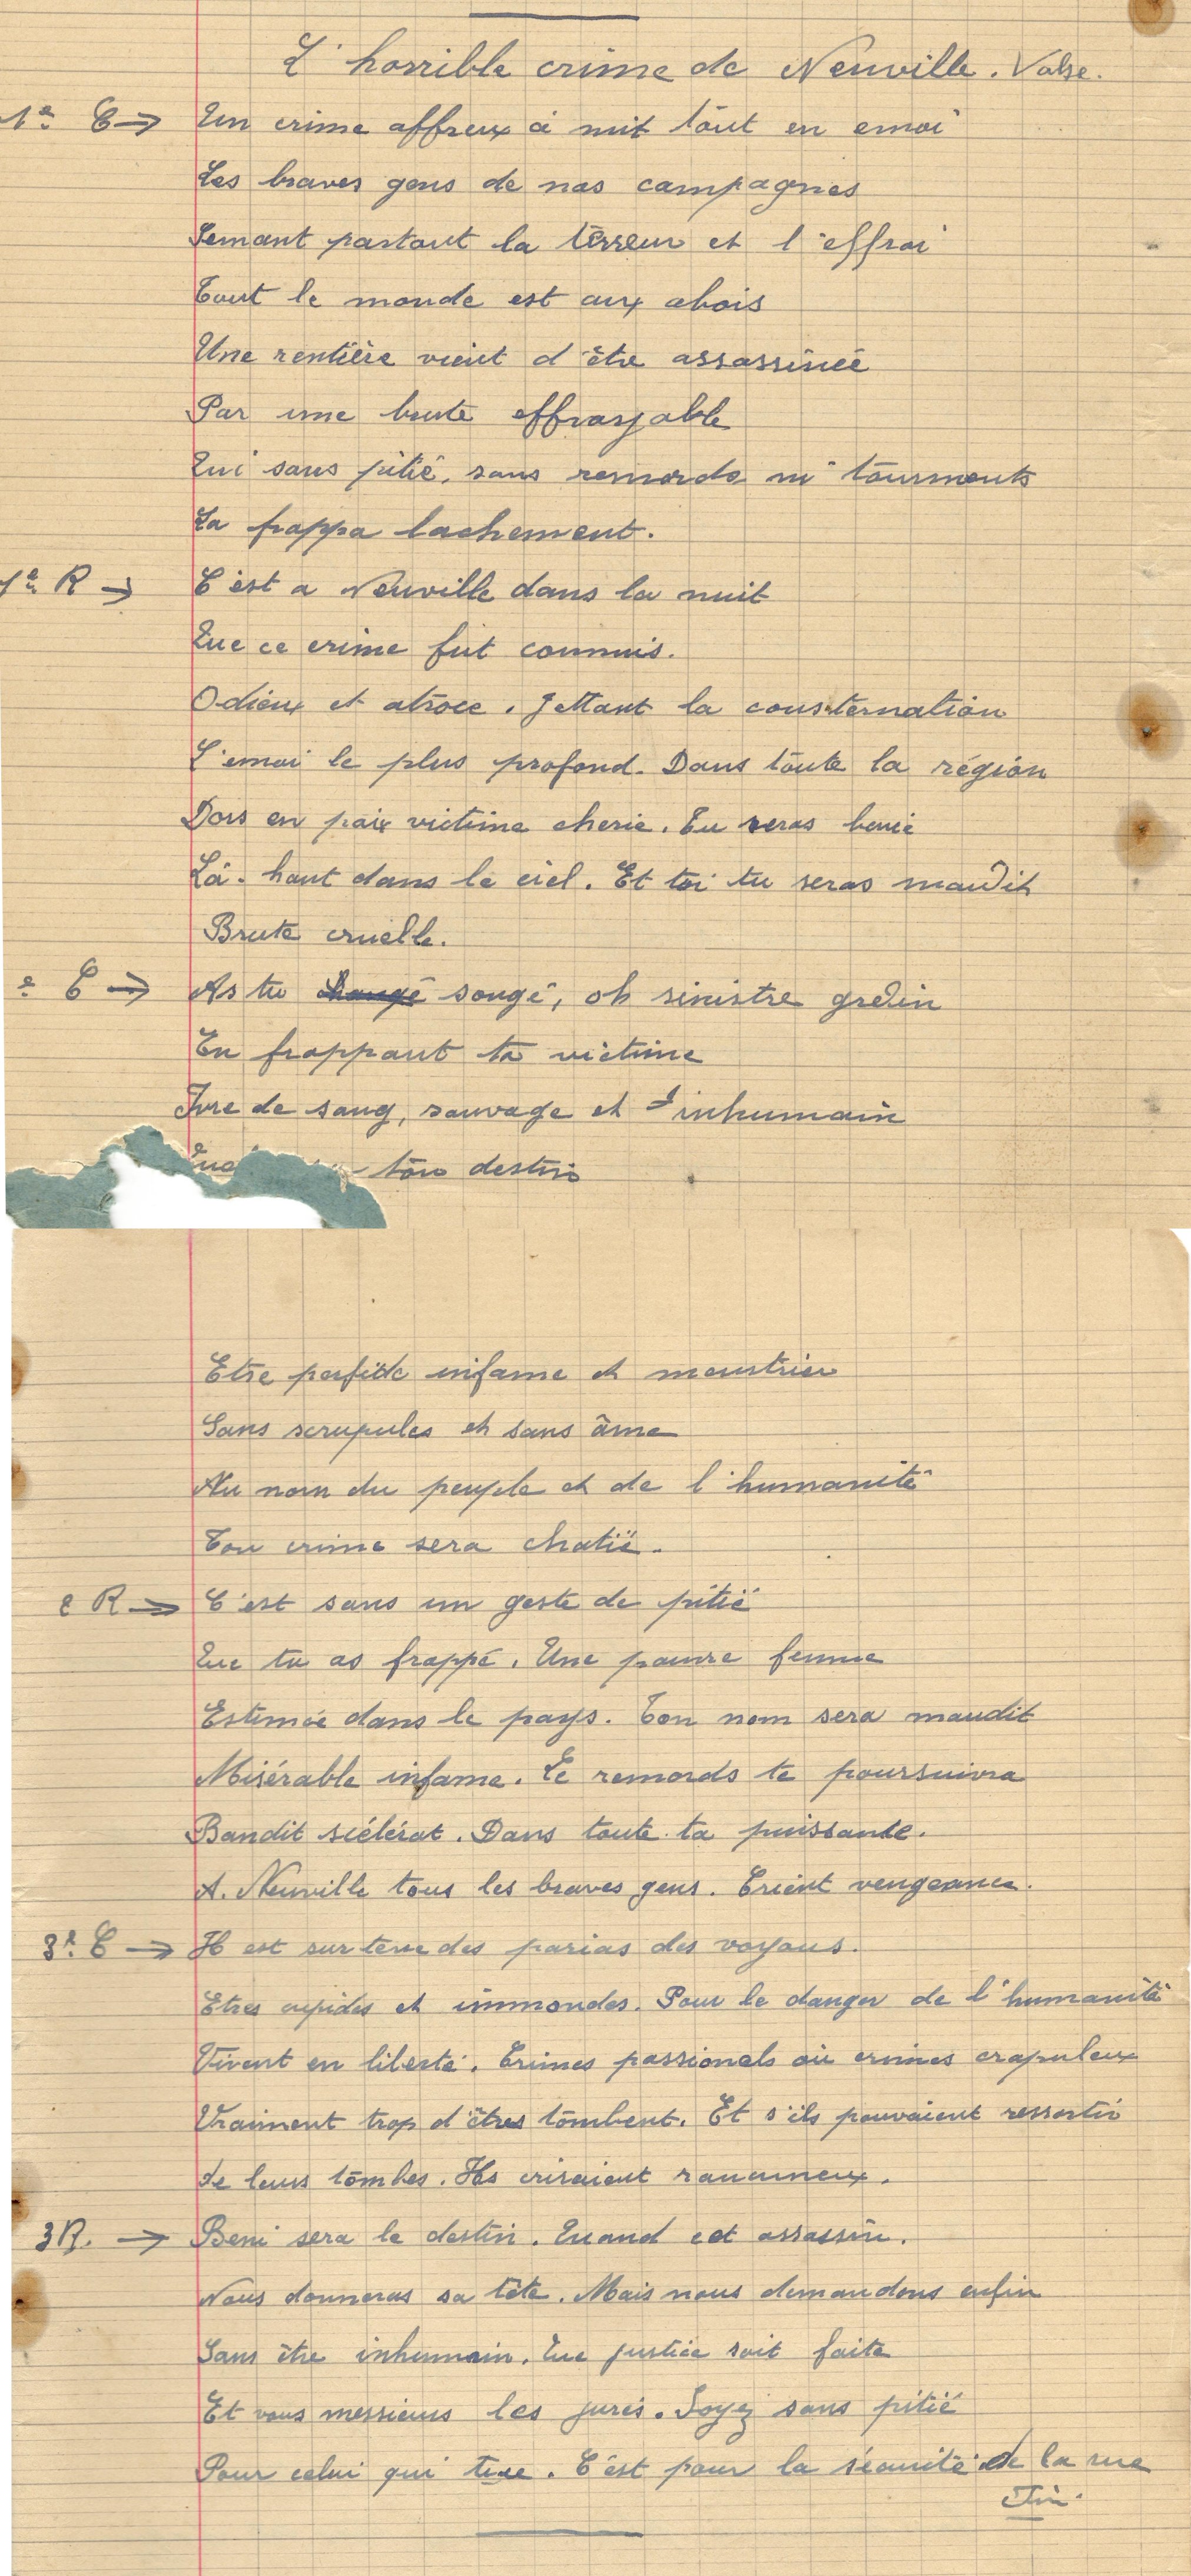 L'horrible crime de Neuville. Valse.
1e C → Un crime affreux à mit tout en emoi
Les braves gens de nos campagnes
Semant partout la terreur et l'effroi
Tout le monde est aux abois
Une rentière vient d'être assassinée
Par une brute effrayable
Qui sans pitié, sans remords ni tourments
La frappa lachement.
1e R → C'est a Neuville dans la nuit
Que ce crime fut commis.
Odieux et atroce. Jettant la consternation
L'emoi le plus profond. Dans toute la région
Dors en paix victime cherie. Tu seras benie
Là-haut dans le ciel. Et toi tu seras maudit
Brute cruelle.
e C → As tu songé, oh sinistre gredin
En frappant ta victime
Ivre de sang, sauvage et d'inhumain
ton destin
Etre perfide infame et meurtrier
Sans scrupules et sans âme
Au nom du peuple et de l'humanité
Ton crime sera chatié.
2 R → C'est sans un geste de pitié
Que tu as frappé. Une pauvre femme
Estimée dans le pays. Ton nom sera maudit
Misérable infame. Le remords te poursuivra
Bandit scélérat. Dans toute ta puissante.
A. Neuville tous les braves gens. Crient vengeance.
3e C → Il est sur terre des parias des voyous.
Etres cupides et immondes. Pour le danger de l'humanité
Vivent en liberté. Crimes passionels où crimes crapuleux
Vraiment trop d'êtres tombent. Et s'ils pouvaient ressortir
de leurs tombes. Ils criraient
3 R. → Beni sera le destin. Quand cet assassin.
Nous donneras sa tête. Mais nous demandons enfin
Sans être inhumain. Que justice soit faite
Et vous messieurs les jurés. Soyez sans pitié
Pour celui qui tue. C'est pour la sécurité de la rue
Fin.